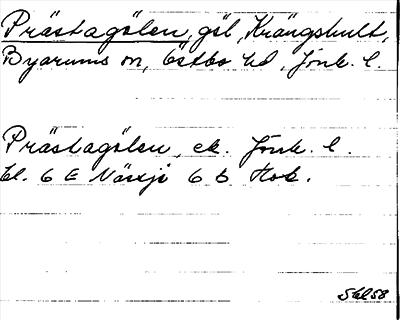 Prästagölen, göl, Krängshult,
Byarums sn, Östbo hd, Jönk. l.
Prästagölen, ek. Jönk. l.
bl. 6 E Nässjö 6 b Hok.
Skl 58